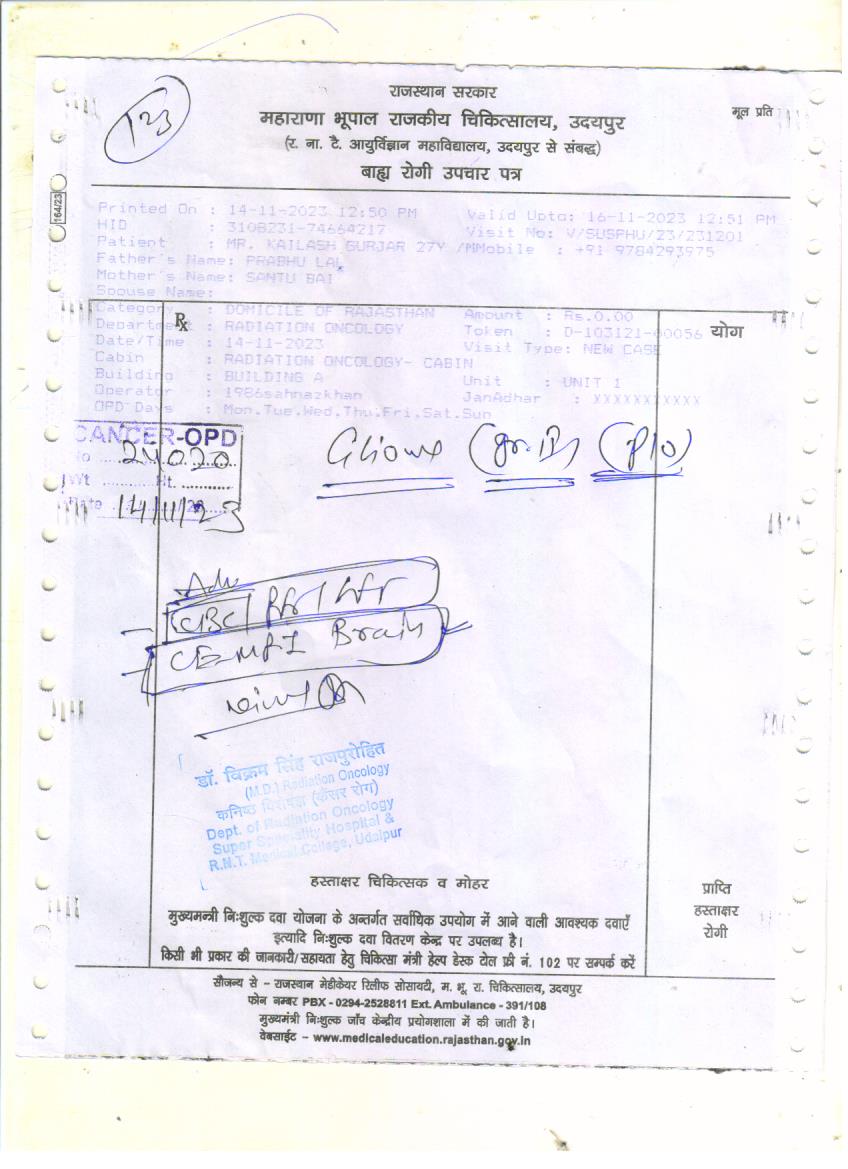 123
राजस्थान सरकार
महाराणा भूपाल राजकीय चिकित्सालय, उदयपुर
मूल प्रति
(र. ना. टै. आयुर्विज्ञान महाविद्यालय, उदयपुर से संबद्ध)
बाह्य रोगी उपचार पत्र
164/23
Printed On : 14-11-2023 12:50 PM Valid Upto: 16-11-2023 12:51 PM
HID : 3108231-74664217 Visit No: V/SUSPHU/23/231201
Patient : MR. KAILASH GURJAR 27Y /MMobile : +91 9784293975
Father's Name: PRABHU LAL
Mother's Name: SANTU BAI
Spouse Name:
Category : DOMICILE OF RAJASTHAN Amount : Rs.0.00
Department : RADIATION ONCOLOGY Token : D-103121-00056
Date/Time : 14-11-2023 Visit Type: NEW CASE
Cabin : RADIATION ONCOLOGY- CABIN
Building : BUILDING A Unit : UNIT 1
Operator : 1986sahnazkhan JanAdhar : XXXXXXXXXXX
OPD Days : Mon,Tue,Wed,Thu,Fri,Sat,Sun
Rx
योग
CANCER-OPD
No 24020
Wt Ht.
Date 14/11/23
(P/O)
Adv
CBC RFT LFT
CE-MRI Brain
डॉ. विक्रम सिंह राजपुरोहित
(M.D.) Radiation Oncology
कनिष्ठ विशेषज्ञ (कैंसर रोग)
Dept. of Radiation Oncology
Super Speciality Hospital &
R.N.T. Medical College, Udaipur
हस्ताक्षर चिकित्सक व मोहर
प्राप्ति
हस्ताक्षर
रोगी
मुख्यमन्त्री निःशुल्क दवा योजना के अन्तर्गत सर्वाधिक उपयोग में आने वाली आवश्यक दवाएँ
इत्यादि निःशुल्क दवा वितरण केन्द्र पर उपलब्ध है।
किसी भी प्रकार की जानकारी/सहायता हेतु चिकित्सा मंत्री हेल्प डेस्क टोल फ्री नं. 102 पर सम्पर्क करें
सौजन्य से - राजस्थान मेडीकेयर रिलीफ सोसायटी, म. भू. रा. चिकित्सालय, उदयपुर
फोन नम्बर PBX - 0294-2528811 Ext. Ambulance - 391/108
मुख्यमंत्री निःशुल्क जाँच केन्द्रीय प्रयोगशाला में की जाती है।
वेबसाईट - www.medicaleducation.rajasthan.gov.in